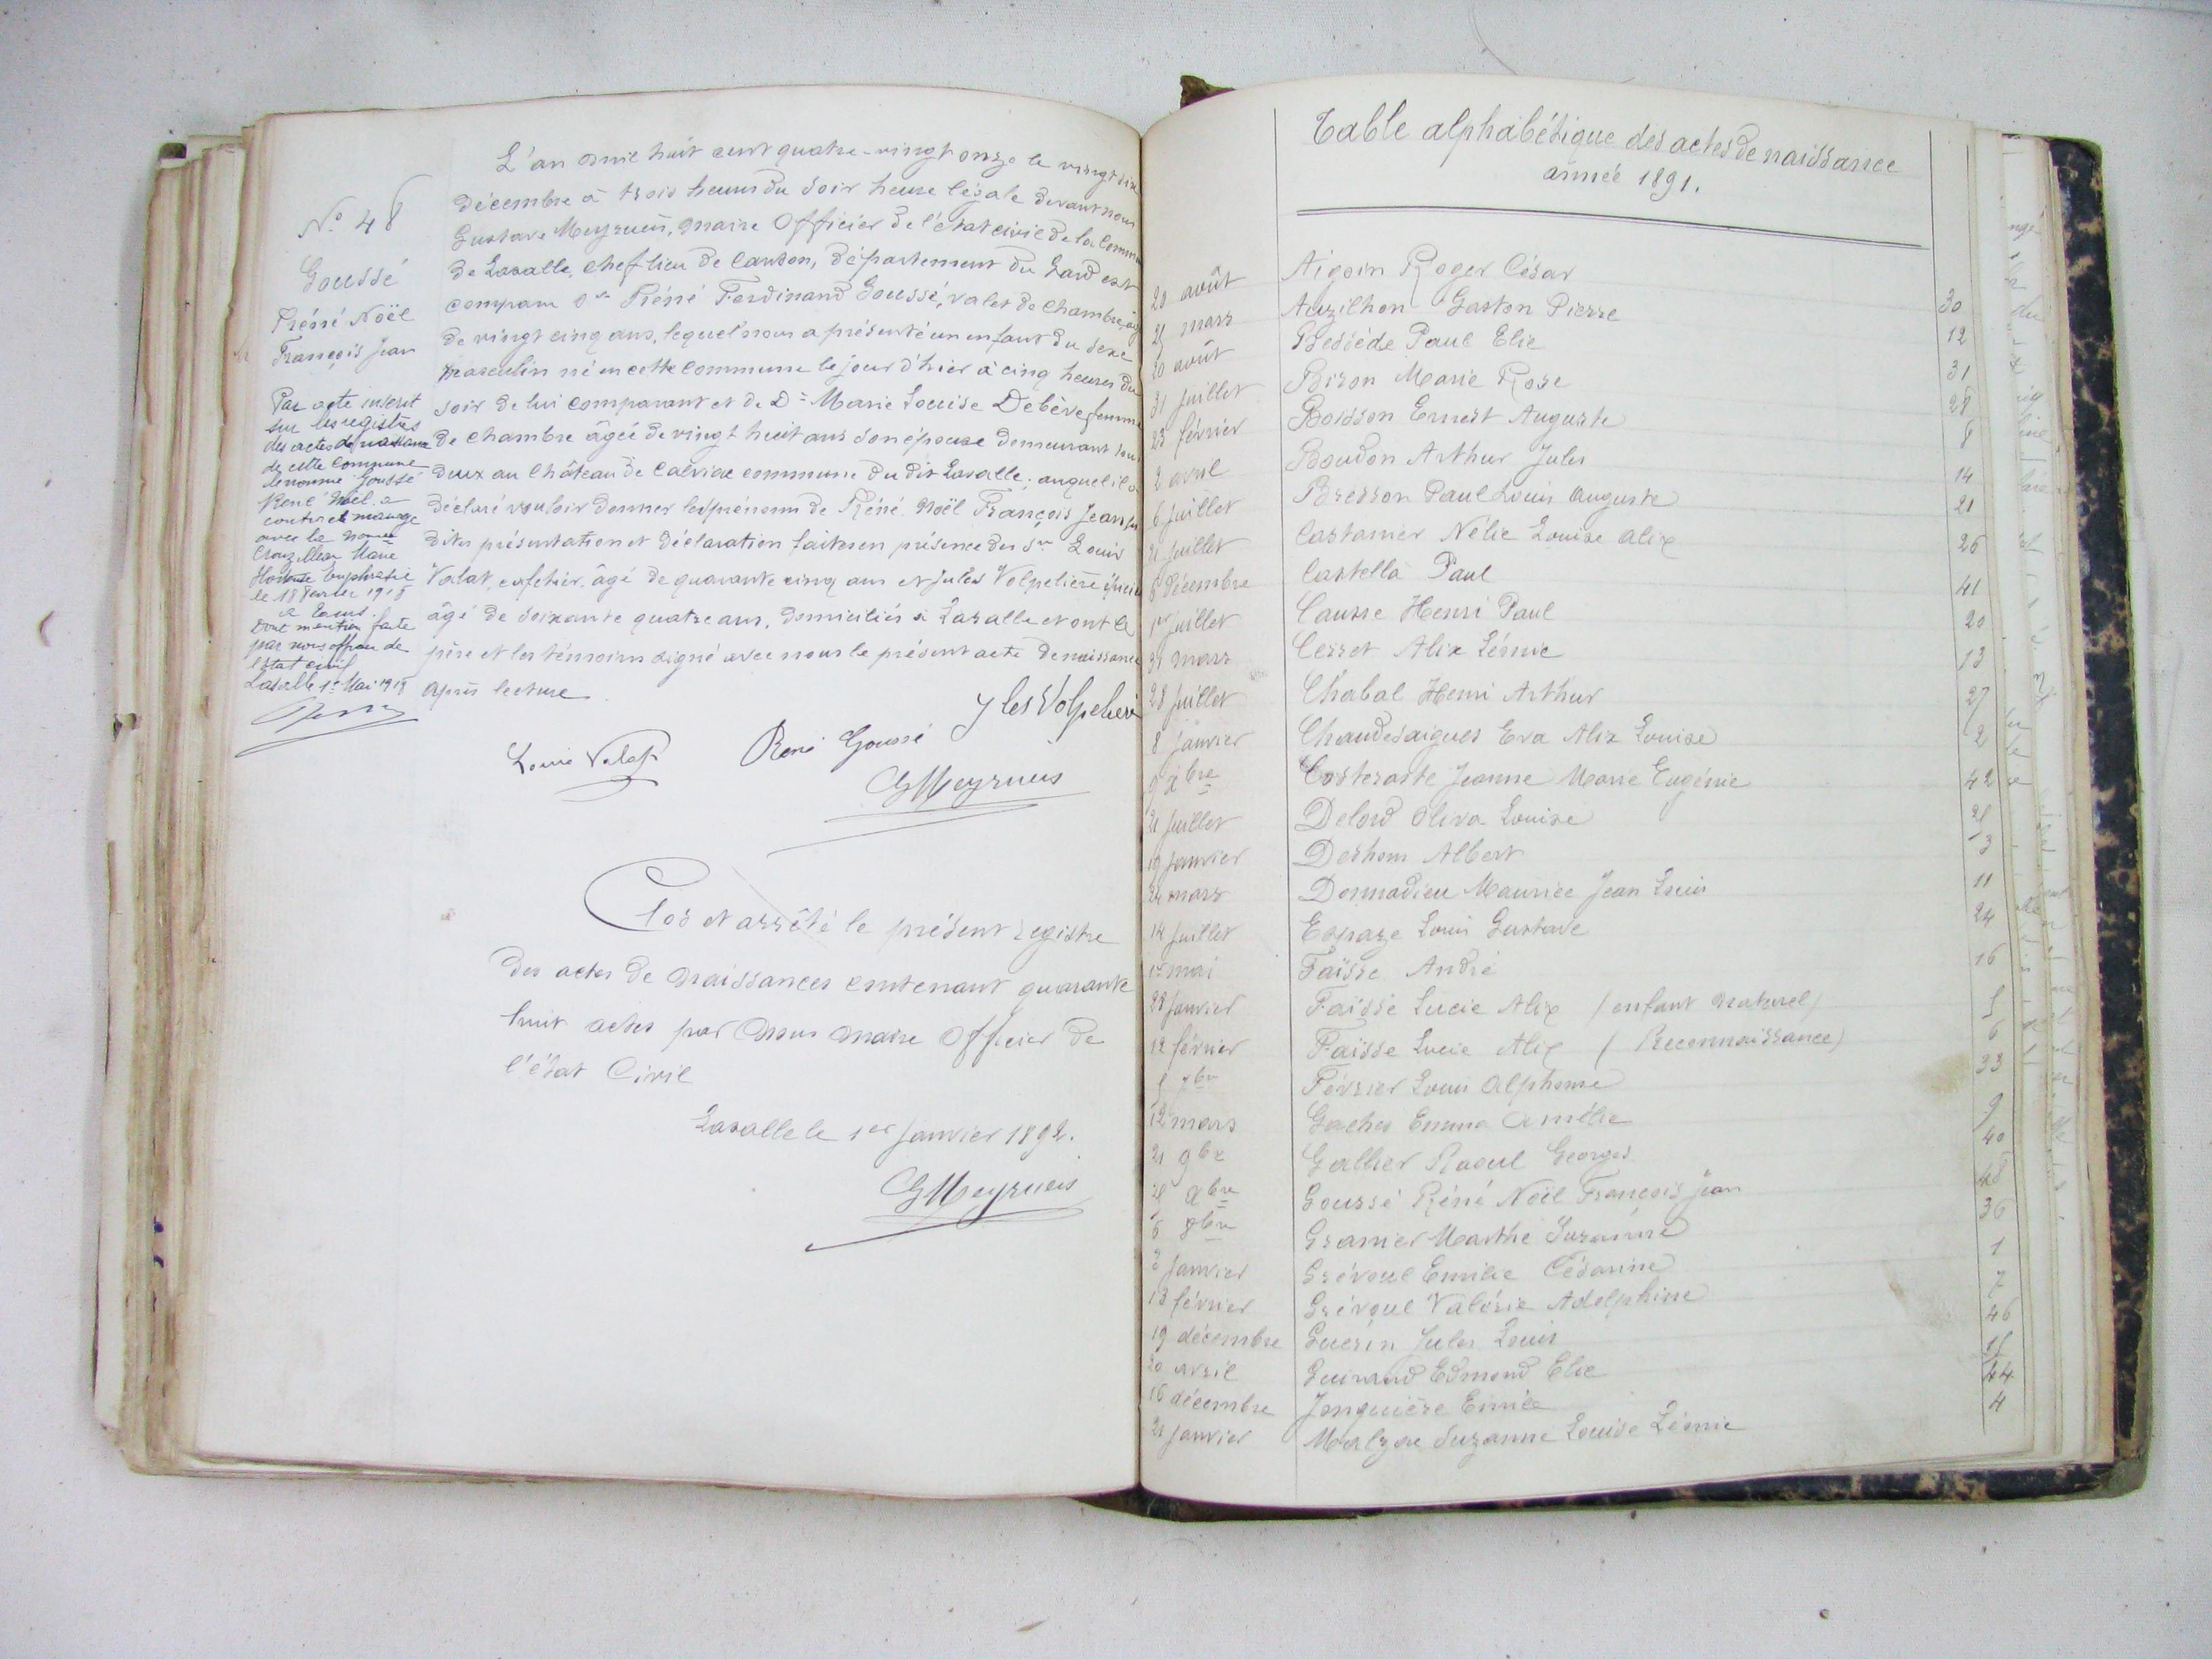 N° 48
Goussé
Réné Noël
François Jean
Par acte inscrit
sur les registres
des actes de
de cette Commune
le nommé Goussé
René Noël a
contracté mariage
avec la
Marie
Hortense Euphrasie
le 18 1918
à
Dont mention faite
par nous officier de
l'état civil
Lasalle 1er Mai 1918
L'an mil huit cent quatre-vingt onze le vingt six
décembre à trois heures du soir heure légale devant nous
Gustave Meyrueis, maire Officier de l'état civil de la Commune
de Lasalle, chef lieu de Canton, département du Gard est
comparu Sr Réné Ferdinand Goussé, valet de chambre, âgé
de vingt cinq ans, lequel nous a présenté un enfant du sexe
masculin né en cette commune le jour d'hier à cinq heures du
soir de lui comparant et de De Marie Louise Debève femme
de chambre âgée de vingt huit ans son épouse demeurant tous
deux au Château de Calviac commune du dit Lasalle; auquel il a
déclaré vouloir donner les prénoms de Réné Noël François Jean
dites présentation et déclaration faites en présence des Srs Louis
Valat, cafetier, âgé de quarante cinq ans et Jules Volpelière épicier
âgé de soixante quatre ans, domiciliés à Lasalle et ont le
père et les témoins signé avec nous le présent acte de naissance
après lecture
Jules Volpeliere
Louis Valat
René Goussé
GMeyrueis
Clos et arrêté le présent registre
des actes de naissances contenant quarante
huit actes par nous maire Officier de
l'état Civil
Lasalle le 1er Janvier 1892.
GMeyrueis
Table alphabétique des actes de naissance
année 1891.
août Aigoin Roger César 30
mars Auzilhon Gaston Pierre 12
20 août Bessède Paul Elie 31
31 juillet Bison Marie Rose 28
23 février Boisson Ernest Auguste 8
2 avril Boudon Arthur Jules 14
6 juillet Bresson Paul Louis Auguste 21
juillet Castanier Nélie Louise Alix 26
8 décembre Castella Paul 41
1er juillet Causse Henri Paul 20
31 mars Cerret Alix Léonie 13
28 juillet Chabal Henri Arthur 27
8 janvier Chaudesaigues Eva Alix Louise 2
9 Xbre Costeraste Jeanne Marie Eugénie 42
21 juillet Delord Oliva Louise 25
19 janvier Deshons Albert 3
24 mars Donnadieu Maurice Jean Louis 11
14 juillet Espaze Louis Gustave 24
1er mai Faïsse André 16
28 janvier Faïsse Lucie Alix (enfant naturel) 5
12 février Faïsse Lucie Alix (Reconnaissance) 6
5 7bre Février Louis Alphonse 33
12 mars Gaches Emma Amélie 9
21 9bre Gallier Raoul Georges 40
25 Xbre Goussé Réné Noël François Jean 48
6 8bre Granier Marthe Suzanne 36
2 janvier Grévoul Emilie Césarine 1
13 février Grévoul Valérie Adelphine 7
19 décembre Guérin Jules Louis 46
20 avril Guirand Edmond Elie 15
16 décembre Jonquière Eimée 44
21 janvier Malzac Suzanne Louise Léonie 4